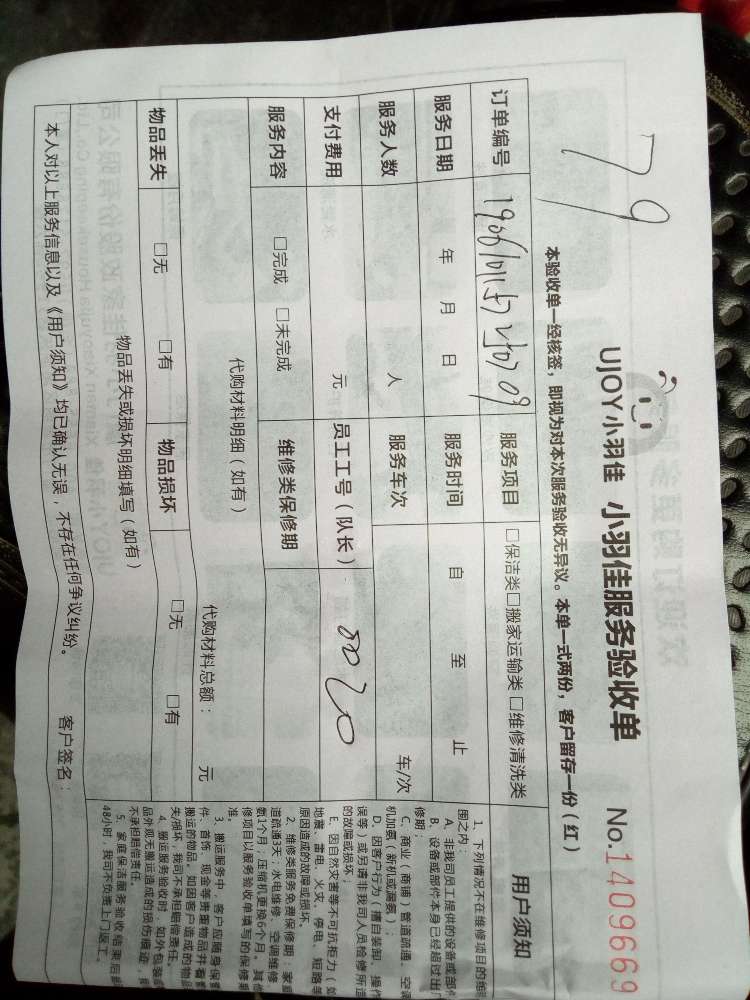 79
UJOY小羽佳 小羽佳服务验收单 No.1409669
本验收单一经核签，即视为对本次服务验收无异议。本单一式两份，客户留存一份（红）
订单编号 服务项目 □保洁类□搬家运输类 □维修清洗类
服务日期 年 月 日 服务时间 自 至 止
服务人数 人 服务车次 车/次
支付费用 元 员工工号（队长） 8020
服务内容 □完成 □未完成 维修类保修期
代购材料明细（如有） 代购材料总额： 元
物品丢失 □无 □有 物品损坏 □无 □有
物品丢失或损坏明细填写（如有）
本人对以上服务信息以及《用户须知》均已确认无误，不存在任何争议纠纷。 客户签名：
用户须知
1、下列情况不在维修项目的维
围之内：
A、非我司员工提供的设备或部件
B、设备或部件本身已经超过出厂
修期；
C、商业（商铺）管道疏通、空调
机加氨（新机或漏氨）；
D、因客户行为（擅自装卸、操作
误等）或另请非我司人员检修所造
的故障或损坏；
E、因自然灾害等不可抗拒力（如
地震、雷电、火灾、停电、短路等
原因造成的故障或损坏。
2、维修类服务免费保修期：家庭
道疏通3天；水电维修、空调维修
氨1个月；压缩机更换6个月。其他
修项目以服务验收单填写的保修期
准。
3、搬运服务中，客户应随身保管
件、首饰、现金等贵重物品并看管
搬运的物品。如因客户造成的物品
失/损坏，我司不承担赔偿责任。
4、搬运服务验收时，如外包装
品外观无搬运造成的损伤痕迹，
不承担赔偿责任。
5、家庭保洁服务验收结束后
48小时，我司不负责上门返工。